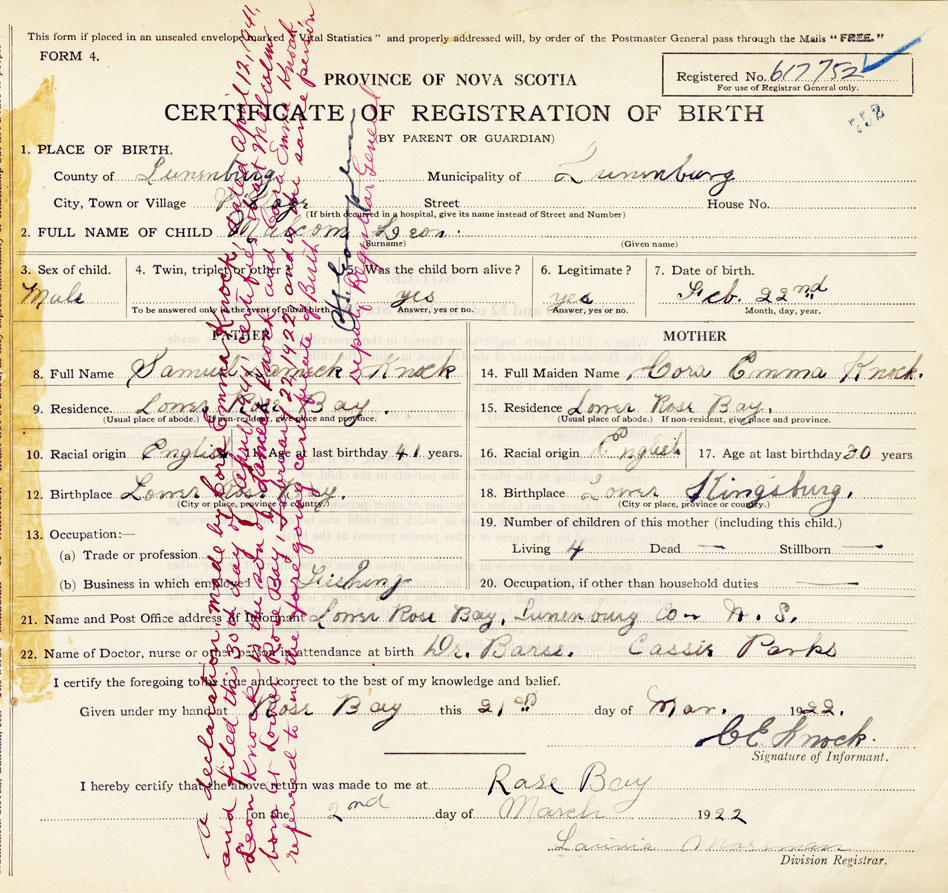 This form if placed in an unsealed envelope marked "Vital Statistics" and properly addressed will, by order of the Postmaster General pass through the Mails "FREE."
FORM 4.
Registered No. 617752
For use of Registrar General only.
752
PROVINCE OF NOVA SCOTIA
CERTIFICATE OF REGISTRATION OF BIRTH
(BY PARENT OR GUARDIAN)
1. PLACE OF BIRTH.
County of Lunenburg Municipality of Lunenburg
City, Town or Village Street House No.
(If birth occurred in a hospital, give its name instead of Street and Number)
2. FULL NAME OF CHILD Malcom Leon.
(Surname) (Given name)
3. Sex of child. 4. Twin, triplet or other 5. Was the child born alive? 6. Legitimate? 7. Date of birth.
Male yes yes Feb. 22nd
To be answered only in the event of plural birth. Answer, yes or no. Answer, yes or no. Month, day, year.
FATHER MOTHER
8. Full Name Samuel Lameck Knock 14. Full Maiden Name Cora Emma Knock.
9. Residence. Lower Rose Bay. 15. Residence Lower Rose Bay.
(Usual place of abode.) If non-resident, give place and province. (Usual place of abode.) If non-resident, give place and province.
10. Racial origin English 11. Age at last birthday 41 years. 16. Racial origin English 17. Age at last birthday 30 years
12. Birthplace Lower Rose Bay. 18. Birthplace Lower Kingsburg.
(City or place, province or country.) (City or place, province or country.)
13. Occupation:— 19. Number of children of this mother (including this child.)
(a) Trade or profession Living 4 Dead — Stillborn —
(b) Business in which employed Fishing 20. Occupation, if other than household duties —
21. Name and Post Office address of Informant Lower Rose Bay, Lunenburg Co- N. S.
22. Name of Doctor, nurse or other person in attendance at birth Dr. Barss. Cassie Parks
I certify the foregoing to be true and correct to the best of my knowledge and belief.
Given under my hand at Rose Bay this 21st day of Mar. 1922.
C E Knock.
Signature of Informant.
I hereby certify that the above return was made to me at Rose Bay
on the 2nd day of March 1922
Mossman
Division Registrar.
a declaration made by Cora Emma Knock, dated April 12, 1941,
and filed this 30th day of April, 1941, certifies that Malcolm
Leon Knock is the son of Lameck Knock and Cora Emma Knock
born at Lower Rose Bay, February 22, 1922 and is the same person
referred to in the foregoing certificate of Birth
Deputy Registrar General